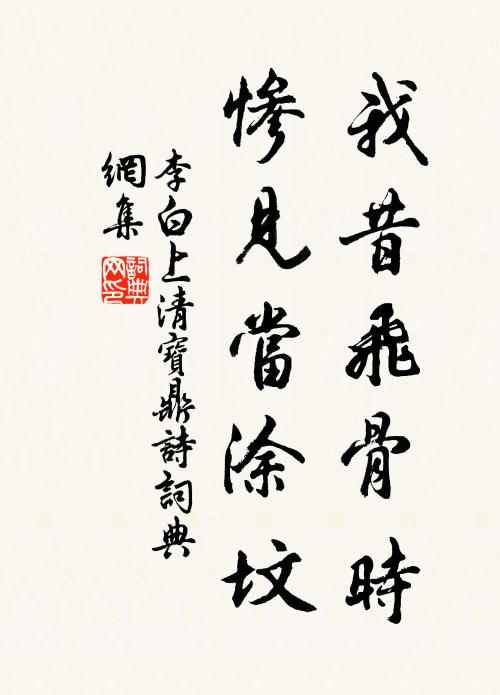 我昔飛骨時
慘見當涂坟
李白上清寶鼎詩詞典
網集
詞典網印